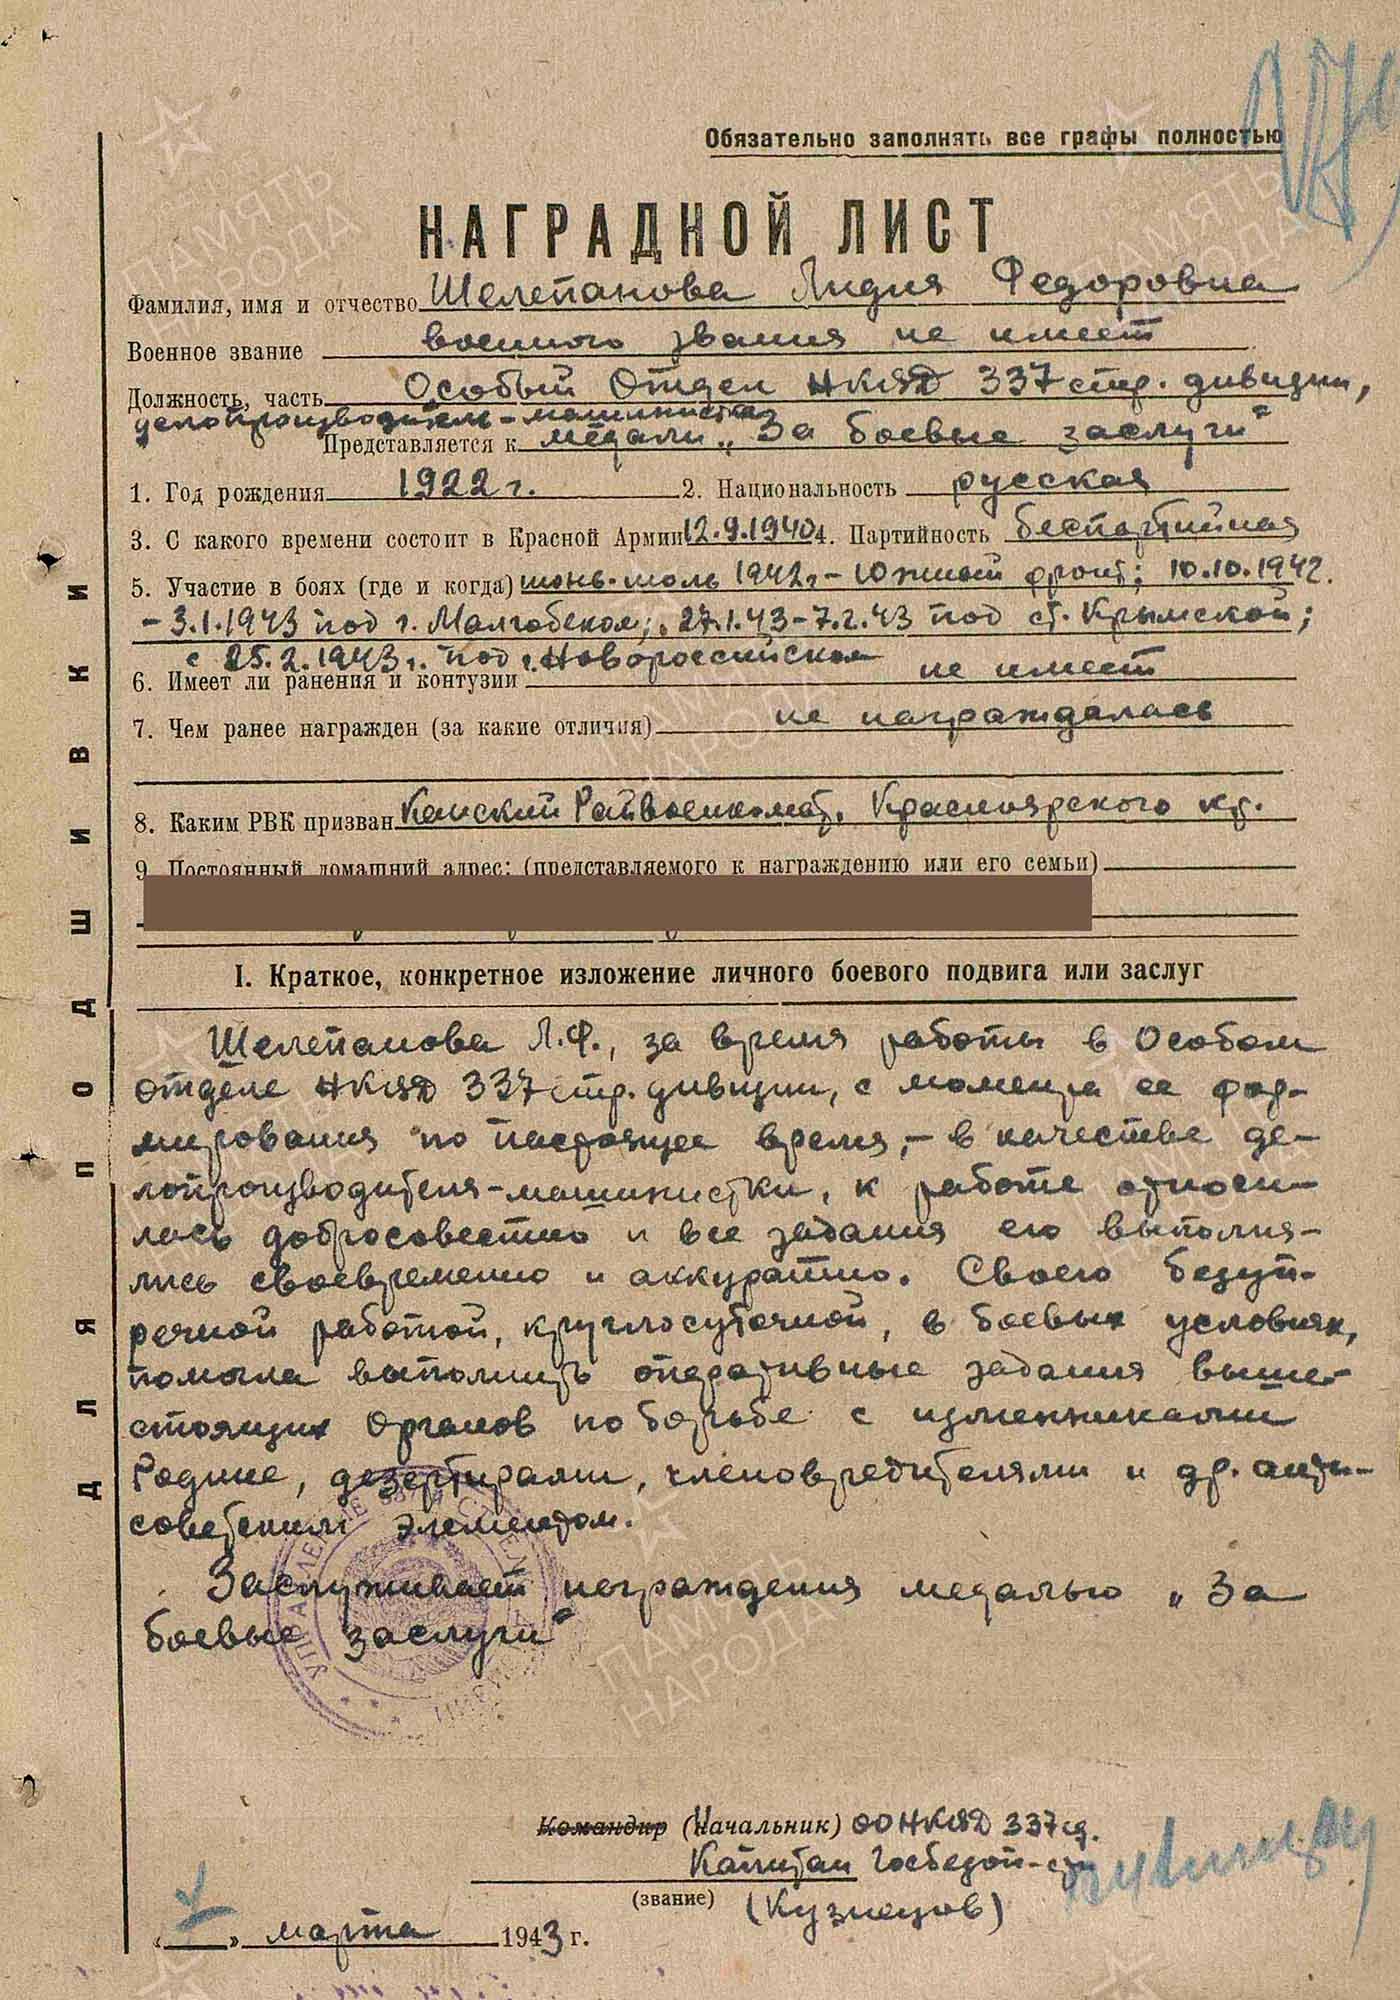 Обязательно заполнять все графы полностью
НАГРАДНОЙ ЛИСТ
Фамилия, имя и отчество Шелепанова Лидия Федоровна
Военное звание военного звания не имеет
Должность, часть Особый Отдел НКВД 337 стр. дивизии,
делопроизводитель-машинистка
Представляется к медали „За боевые заслуги"
1. Год рождения 1922 г. 2. Национальность русская
3. С какого времени состоит в Красной Армии 12.9.1940 4. Партийность беспартийная
5. Участие в боях (где и когда) июнь-июль 1942г. – Южный фронт; 10.10.1942.
– 3.1.1943 под г. Малгобеком; 27.1.43 – 7.2.43 под ст. Крымской;
с 25.2.1943 г. под г. Новороссийском
6. Имеет ли ранения и контузии не имеет
7. Чем ранее награжден (за какие отличия) не награждалась
8. Каким РВК призван Канский Райвоенкомат, Красноярского кр.
9. Постоянный домашний адрес: (представляемого к награждению или его семьи)
I. Краткое, конкретное изложение личного боевого подвига или заслуг
Шелепанова Л.Ф., за время работы в Особом
отделе НКВД 337 стр. дивизии, с момента ее фор-
мирования по настоящее время, – в качестве де-
лопроизводителя-машинистки, к работе относи-
лась добросовестно и все задания ею выполня-
лись своевременно и аккуратно. Своей безуп-
речной работой, круглосуточной, в боевых условиях,
помогла выполнить оперативные задания выше-
стоящих Органов по борьбе с изменниками
Родине, дезертирами, членовредителями и др. анти-
советским элементом.
Заслуживает награждения медалью „За
боевые заслуги"
УПРАВЛЕНИЕ 337 СТРЕЛ
Командир (Начальник) ОО НКВД 337 сд.
Капитан Госбезоп-сти
(звание) (Кузнецов)
« » марта 1943 г.
ДЛЯ ПОДШИВКИ
ПАМЯТЬ НАРОДА
ПАМЯТЬ НАРОДА
ПАМЯТЬ НАРОДА
ПАМЯТЬ НАРОДА